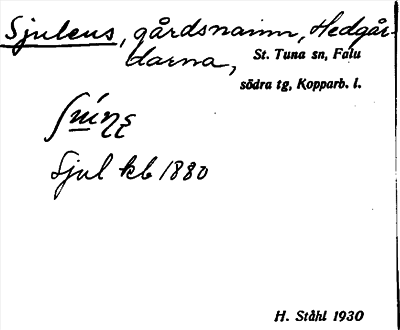 Sjulens, gårdsnamn, Hedgår-
darna, St. Tuna sn, Falu
södra tg, Kopparb. l.
Sjul kb 1880
H. Ståhl 1930